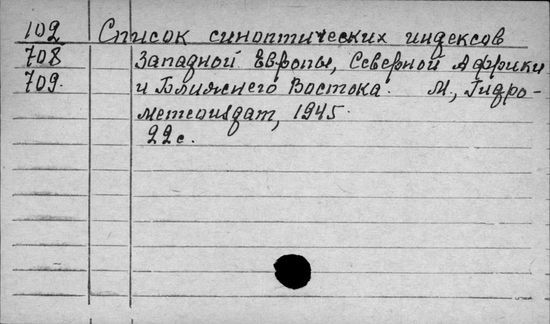 102 Список синоптических индексов
708 Западной Европы, Северной Африки
709. и Ближнего Востока. М., Гидро-
метеоиздат, 1945.
22 с.